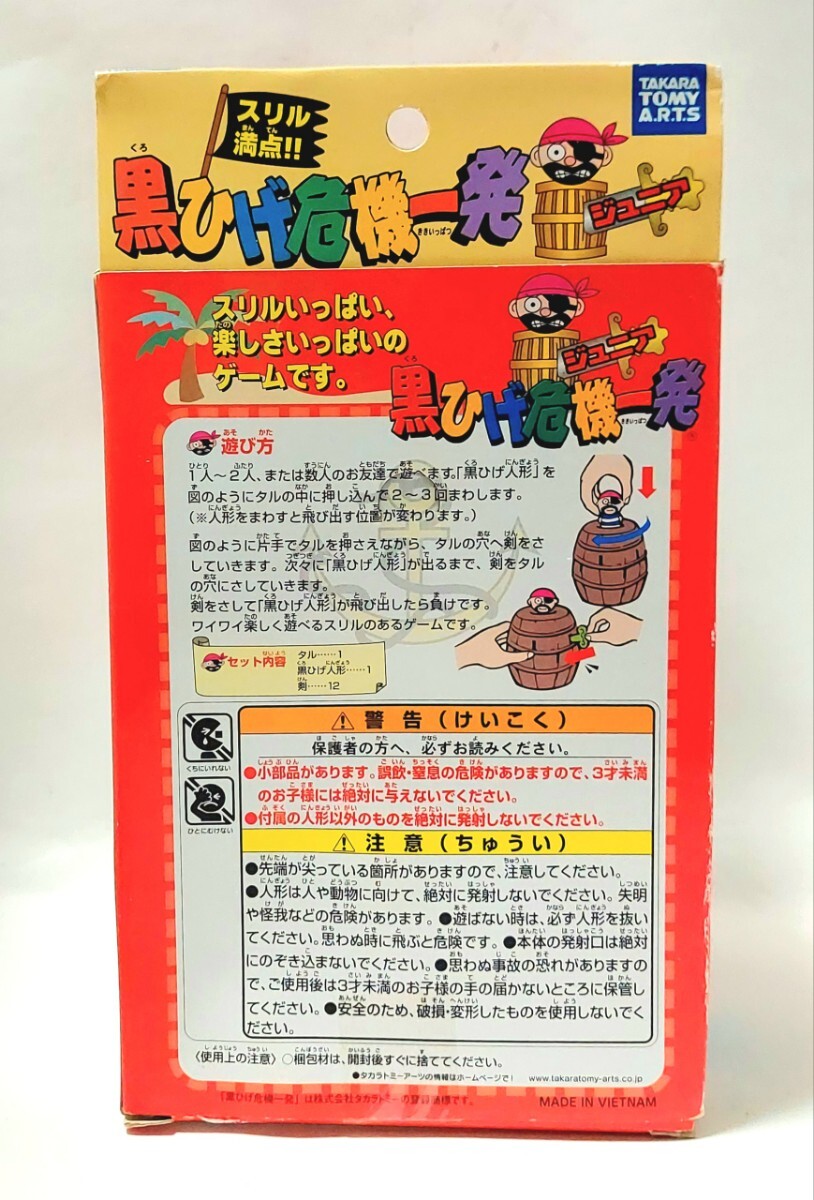 スリル
満点!!
TAKARA
TOMY
A.R.T.S
黒ひげ危機一発
ジュニア
スリルいっぱい、
楽しさいっぱいの
ゲームです。
ジュニア
黒ひげ危機一発
遊び方
1人〜2人、または数人のお友達で遊べます。「黒ひげ人形」を
図のようにタルの中に押し込んで2〜3回まわします。
(※人形をまわすと飛び出す位置が変わります。)
図のように片手でタルを押さえながら、タルの穴へ剣をさ
していきます。次々に「黒ひげ人形」が出るまで、剣をタル
の穴にさしていきます。
剣をさして「黒ひげ人形」が飛び出したら負けです。
ワイワイ楽しく遊べるスリルのあるゲームです。
セット内容
タル……1
黒ひげ人形……1
剣……12
くちにいれない
ひとにむけない
⚠ 警告(けいこく)
保護者の方へ、必ずお読みください。
●小部品があります。誤飲・窒息の危険がありますので、3才未満
のお子様には絶対に与えないでください。
●付属の人形以外のものを絶対に発射しないでください。
⚠ 注意(ちゅうい)
●先端が尖っている箇所がありますので、注意してください。
●人形は人や動物に向けて、絶対に発射しないでください。失明
や怪我などの危険があります。●遊ばない時は、必ず人形を抜い
てください。思わぬ時に飛ぶと危険です。●本体の発射口は絶対
にのぞき込まないでください。●思わぬ事故の恐れがありますの
で、ご使用後は3才未満のお子様の手の届かないところに保管し
てください。●安全のため、破損・変形したものを使用しないでく
ださい。
〈使用上の注意〉○梱包材は、開封後すぐに捨ててください。
●タカラトミーアーツの情報はホームページで! www.takaratomy-arts.co.jp
「黒ひげ危機一発」は株式会社タカラトミーの登録商標です。
MADE IN VIETNAM